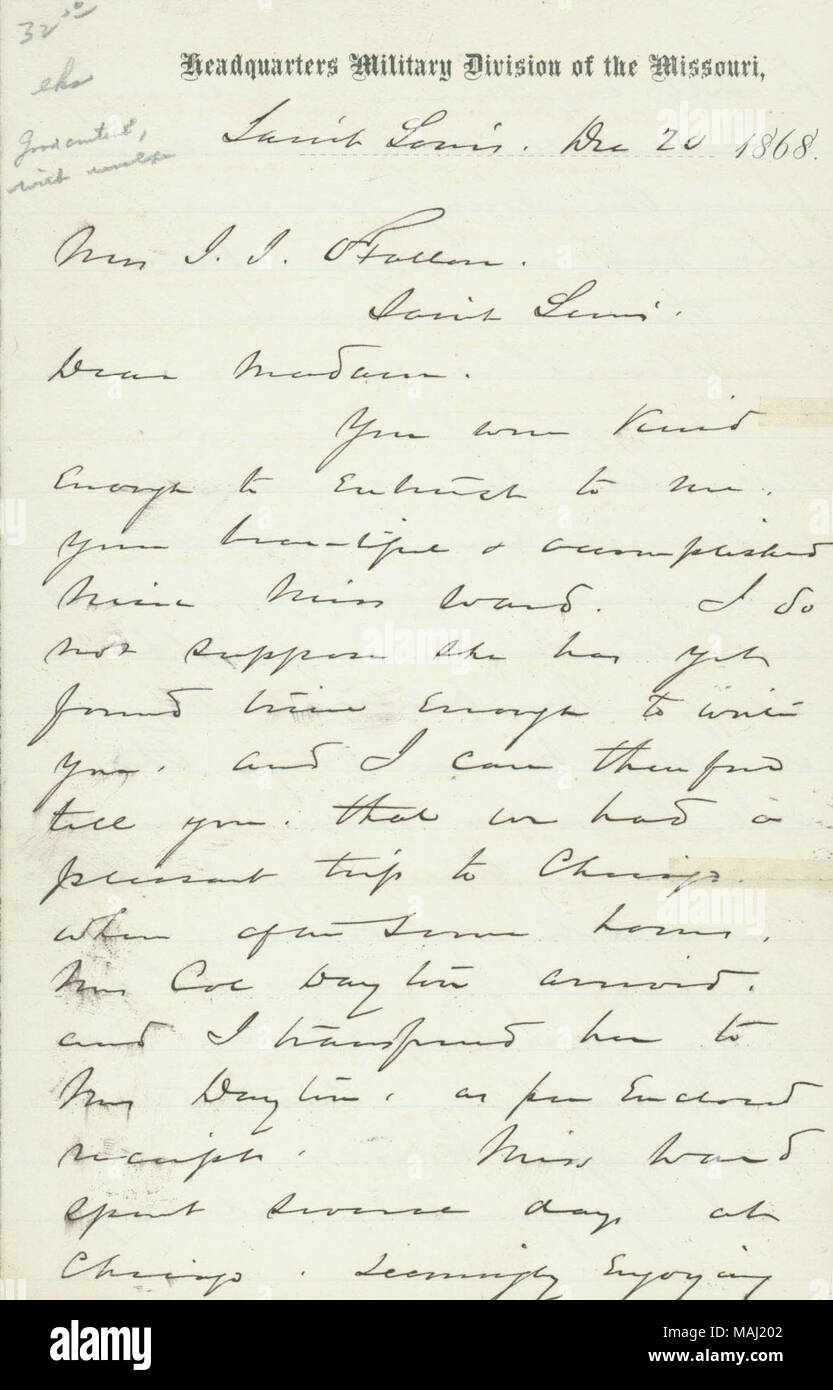 32 50
eks
Good content,
with
Headquarters Military Division of the Missouri,
Saint Louis. Dec 20 1868.
Mrs J. J. O'Fallon.
Saint Louis.
Dear Madam.
You were Kind
Enough to Entrust to me.
your beautiful & accomplished
niece Miss Ward. I do
not suppose she has yet
found time Enough to write
you. and I can therefore
tell you. that we had a
pleasant trip to Chicago.
when after some hours.
Mrs Col Dayton arrived.
and I transferred her to
Mrs Dayton. as per Enclosed
receipt. Miss Ward
spent several days at
Chicago. Seemingly Enjoying
alamy
Image ID: MAJ202
www.alamy.com